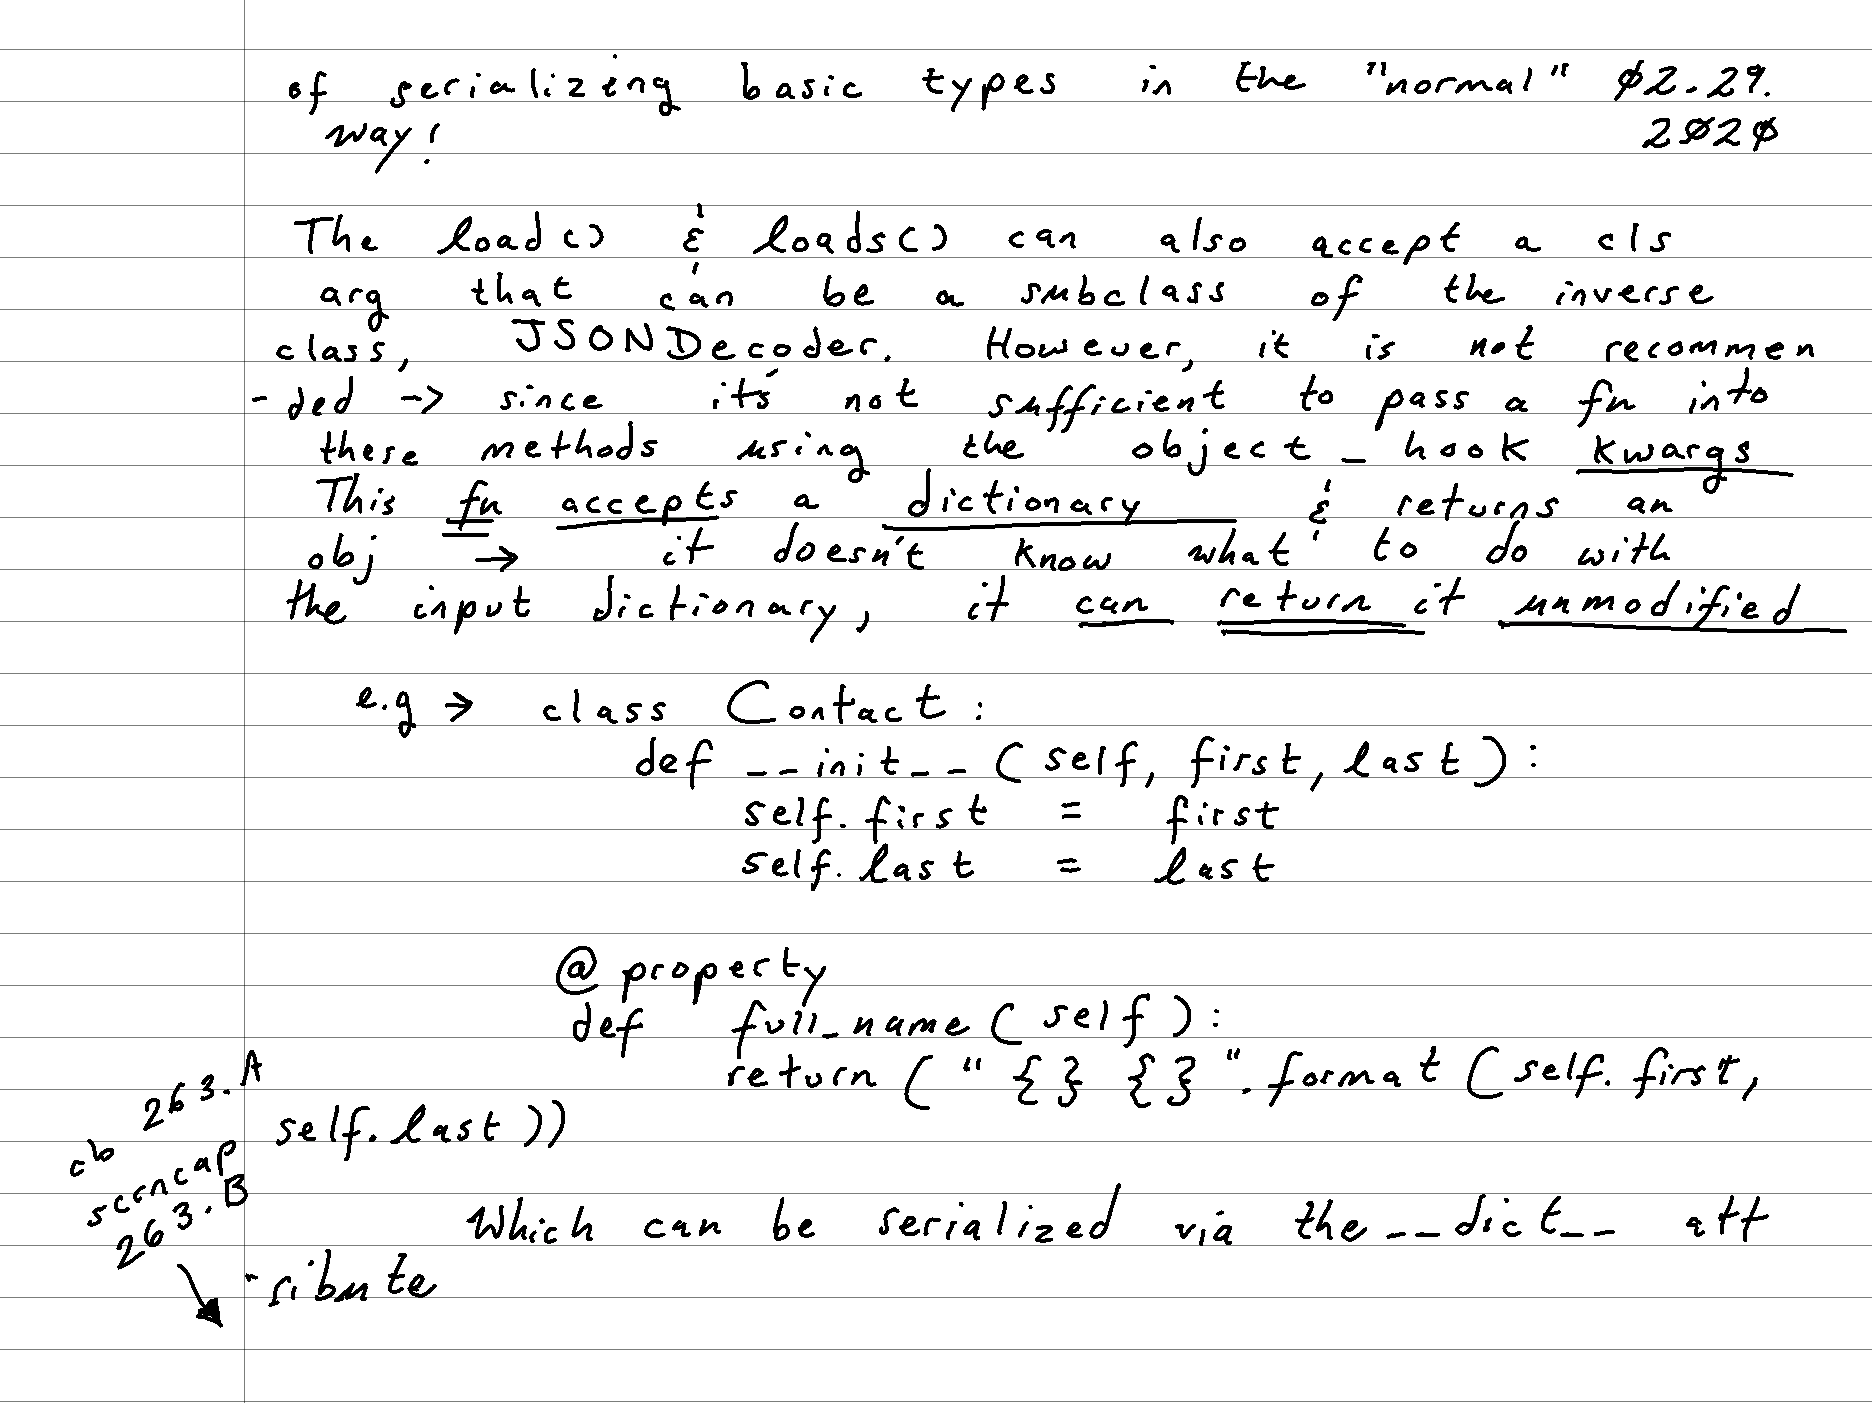 of serializing basic types in the "normal" 02.29.
way! 2020
The load() & loads() can also accept a cls
arg that can be a subclass of the inverse
class, JSONDecoder. However, it is not recommen
-ded -> since it's not sufficient to pass a fn into
these methods using the object_hook kwargs
This fn accepts a dictionary & returns an
obj → it doesn't know what to do with
the input dictionary, it can return it unmodified
e.g → class Contact:
def __init__(self, first, last):
self.first = first
self.last = last
@property
def full_name(self):
return ("{} {}".format(self.first,
self.last))
cb 263.A
scrncap
263.B
Which can be serialized via the __dict__ att
-ribute